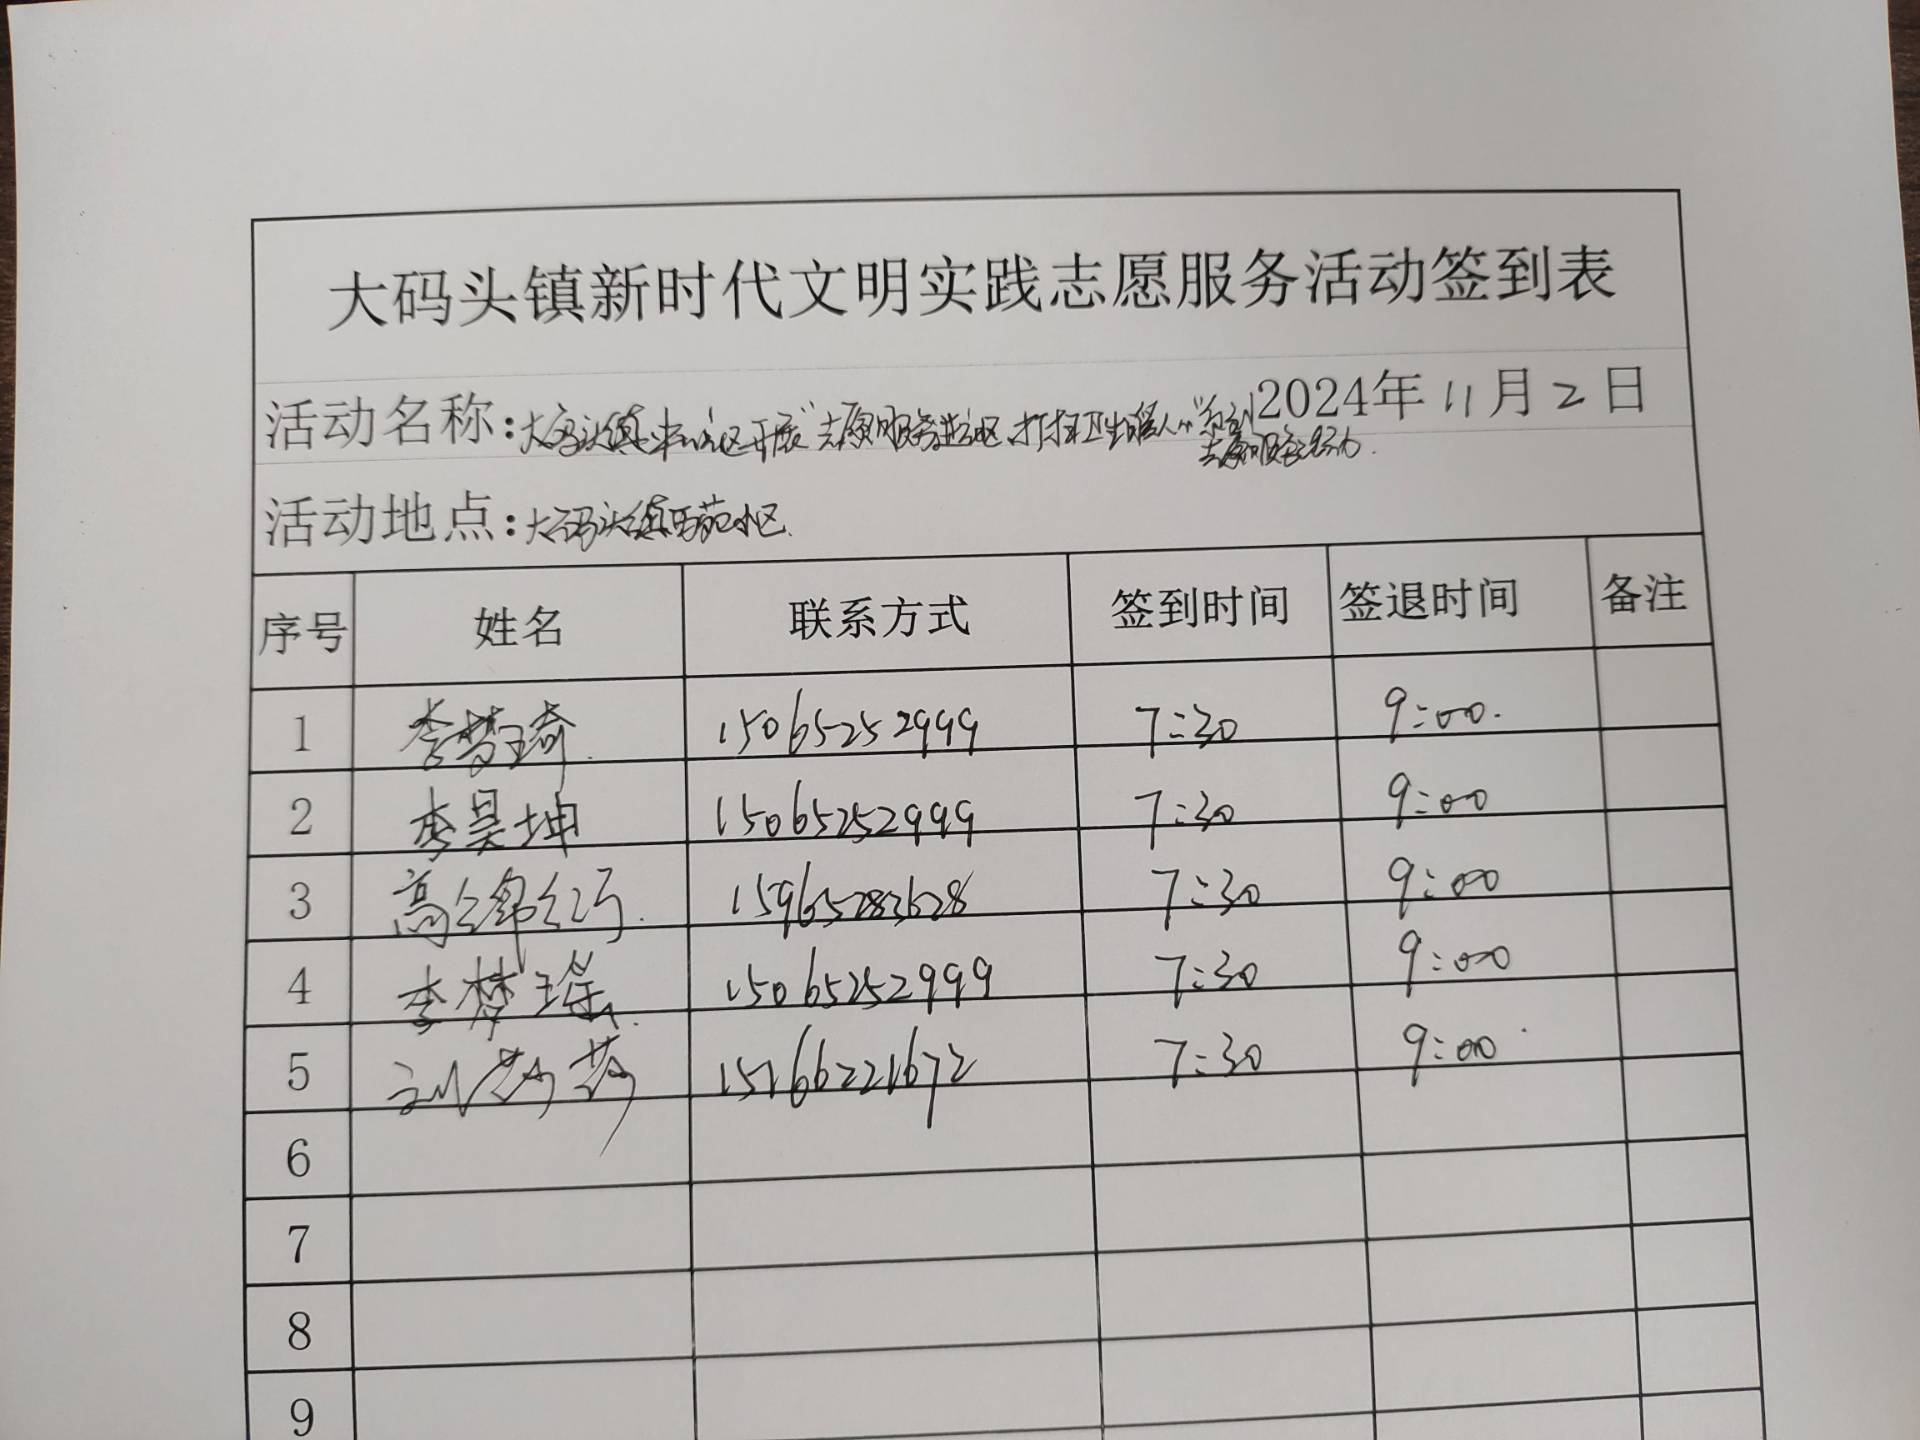 大码头镇新时代文明实践志愿服务活动签到表
活动名称:大码头镇 开展"志愿服务进社区,打扫卫生暖人心" 2024年11月2日
志愿服务活动.
活动地点:大码头镇 苑小区.
序号 姓名 联系方式 签到时间 签退时间 备注
1 李梦琦. 15065252999 7:30 9:00.
2 李昊坤 15065252999 7:30 9:00
3 高 15965283628 7:30 9:00
4 李梦瑶. 15065252999 7:30 9:00
5 刘莎莎 15766221672 7:30 9:00
6
7
8
9